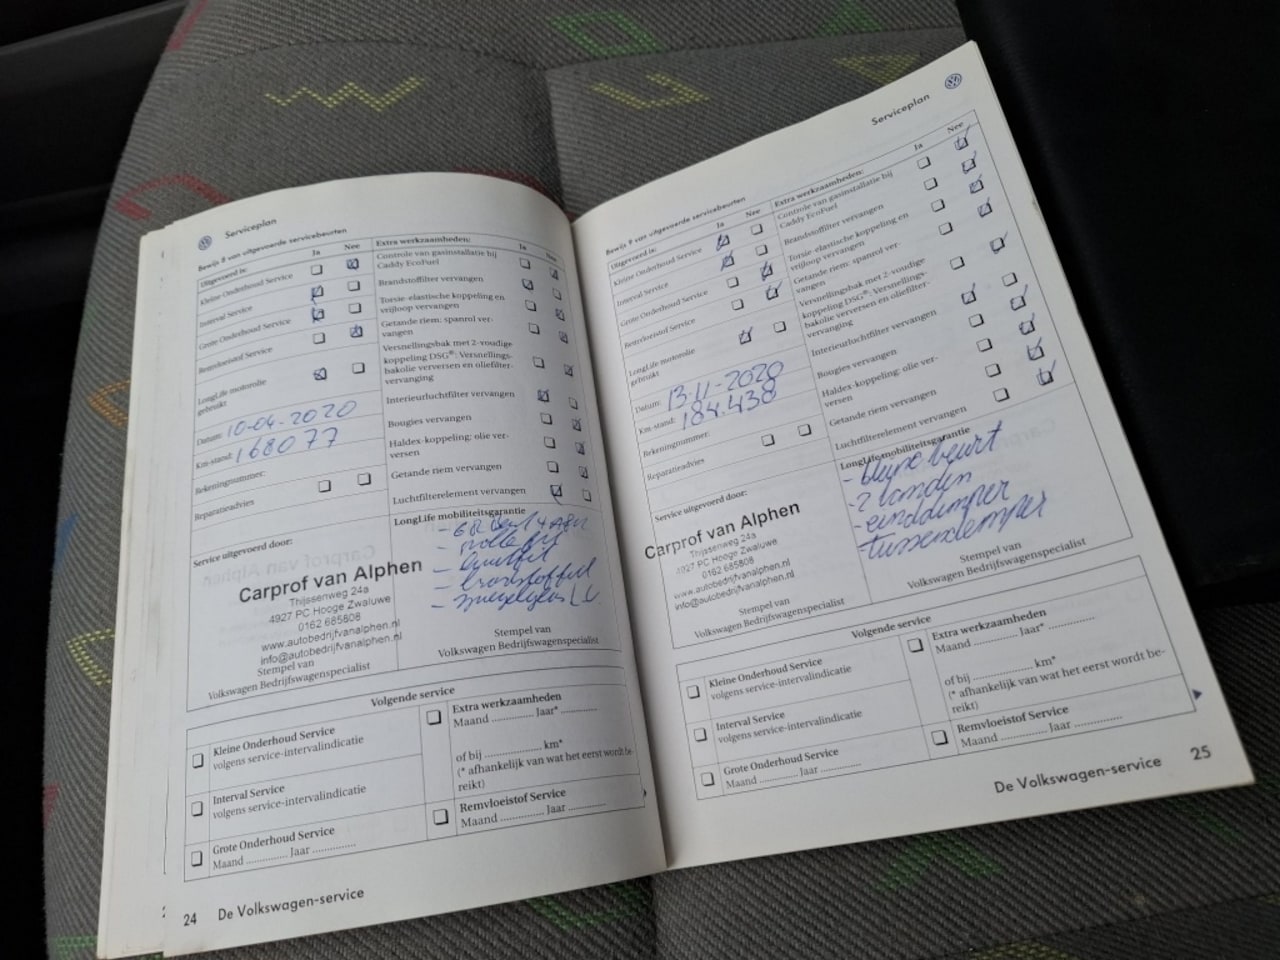 Serviceplan
Bewijs 8 van uitgevoerde servicebeurten
Uitgevoerd is:
Ja
Nee
Kleine Onderhoud Service
Interval Service
Grote Onderhoud Service
Remvloeistof Service
LongLife motorolie
gebruikt
Datum: 10-04-2020
Km-stand: 168077
Rekeningnummer:
Reparatieadvies
Service uitgevoerd door:
Carprof van Alphen
Thijssenweg 24a
4927 PC Hooge Zwaluwe
0162 685808
www.autobedrijfvanalphen.nl
info@autobedrijfvanalphen.nl
Stempel van
Volkswagen Bedrijfswagenspecialist
Extra werkzaamheden:
Ja
Nee
Controle van gasinstallatie bij
Caddy EcoFuel
Brandstoffilter vervangen
Torsie-elastische koppeling en
vrijloop vervangen
Getande riem: spanrol ver-
vangen
Versnellingsbak met 2-voudige
koppeling DSG®: Versnellings-
bakolie verversen en oliefilter-
vervanging
Interieurluchtfilter vervangen
Bougies vervangen
Haldex-koppeling: olie ver-
versen
Getande riem vervangen
Luchtfilterelement vervangen
LongLife mobiliteitsgarantie
Stempel van
Volkswagen Bedrijfswagenspecialist
Volgende service
Kleine Onderhoud Service
volgens service-intervalindicatie
Interval Service
volgens service-intervalindicatie
Grote Onderhoud Service
Maand .............. Jaar ..............
Extra werkzaamheden
Maand .............. Jaar* ..............
of bij .................... km*
(* afhankelijk van wat het eerst wordt be-
reikt)
Remvloeistof Service
Maand .............. Jaar ..............
24 De Volkswagen-service
Serviceplan
Bewijs 9 van uitgevoerde servicebeurten
Uitgevoerd is:
Ja
Nee
Kleine Onderhoud Service
Interval Service
Grote Onderhoud Service
Remvloeistof Service
LongLife motorolie
gebruikt
Datum: 13-11-2020
Km-stand: 184.438
Rekeningnummer:
Reparatieadvies
Service uitgevoerd door:
Carprof van Alphen
Thijssenweg 24a
4927 PC Hooge Zwaluwe
0162 685808
www.autobedrijfvanalphen.nl
info@autobedrijfvanalphen.nl
Stempel van
Volkswagen Bedrijfswagenspecialist
Extra werkzaamheden:
Ja
Nee
Controle van gasinstallatie bij
Caddy EcoFuel
Brandstoffilter vervangen
Torsie-elastische koppeling en
vrijloop vervangen
Getande riem: spanrol ver-
vangen
Versnellingsbak met 2-voudige
koppeling DSG®: Versnellings-
bakolie verversen en oliefilter-
vervanging
Interieurluchtfilter vervangen
Bougies vervangen
Haldex-koppeling: olie ver-
versen
Getande riem vervangen
Luchtfilterelement vervangen
LongLife mobiliteitsgarantie
beurt
- 2 banden
- einddemper
- tussendemper
Stempel van
Volkswagen Bedrijfswagenspecialist
Volgende service
Kleine Onderhoud Service
volgens service-intervalindicatie
Interval Service
volgens service-intervalindicatie
Grote Onderhoud Service
Maand .............. Jaar ..............
Extra werkzaamheden
Maand .............. Jaar* ..............
of bij .................... km*
(* afhankelijk van wat het eerst wordt be-
reikt)
Remvloeistof Service
Maand .............. Jaar ..............
De Volkswagen-service 25